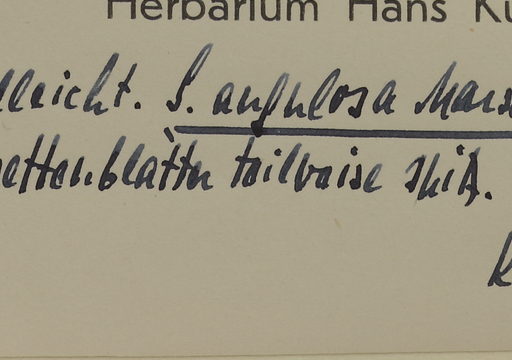 Herbarium Hans Ku
lleicht. S. angulosa Maxs
ettenblätter teilweise spitz.